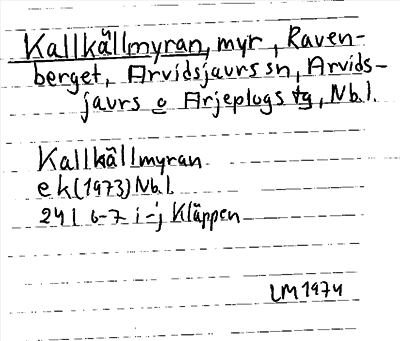 Kallkällmyran, myr, Raven-
berget, Arvidsjaurs sn, Arvids-
jaurs o Arjeplogs tg, Nb.l.
Kallkällmyran
ek (1973) Nb.l.
24 I 6-7 i-j Kläppen
LM 1974